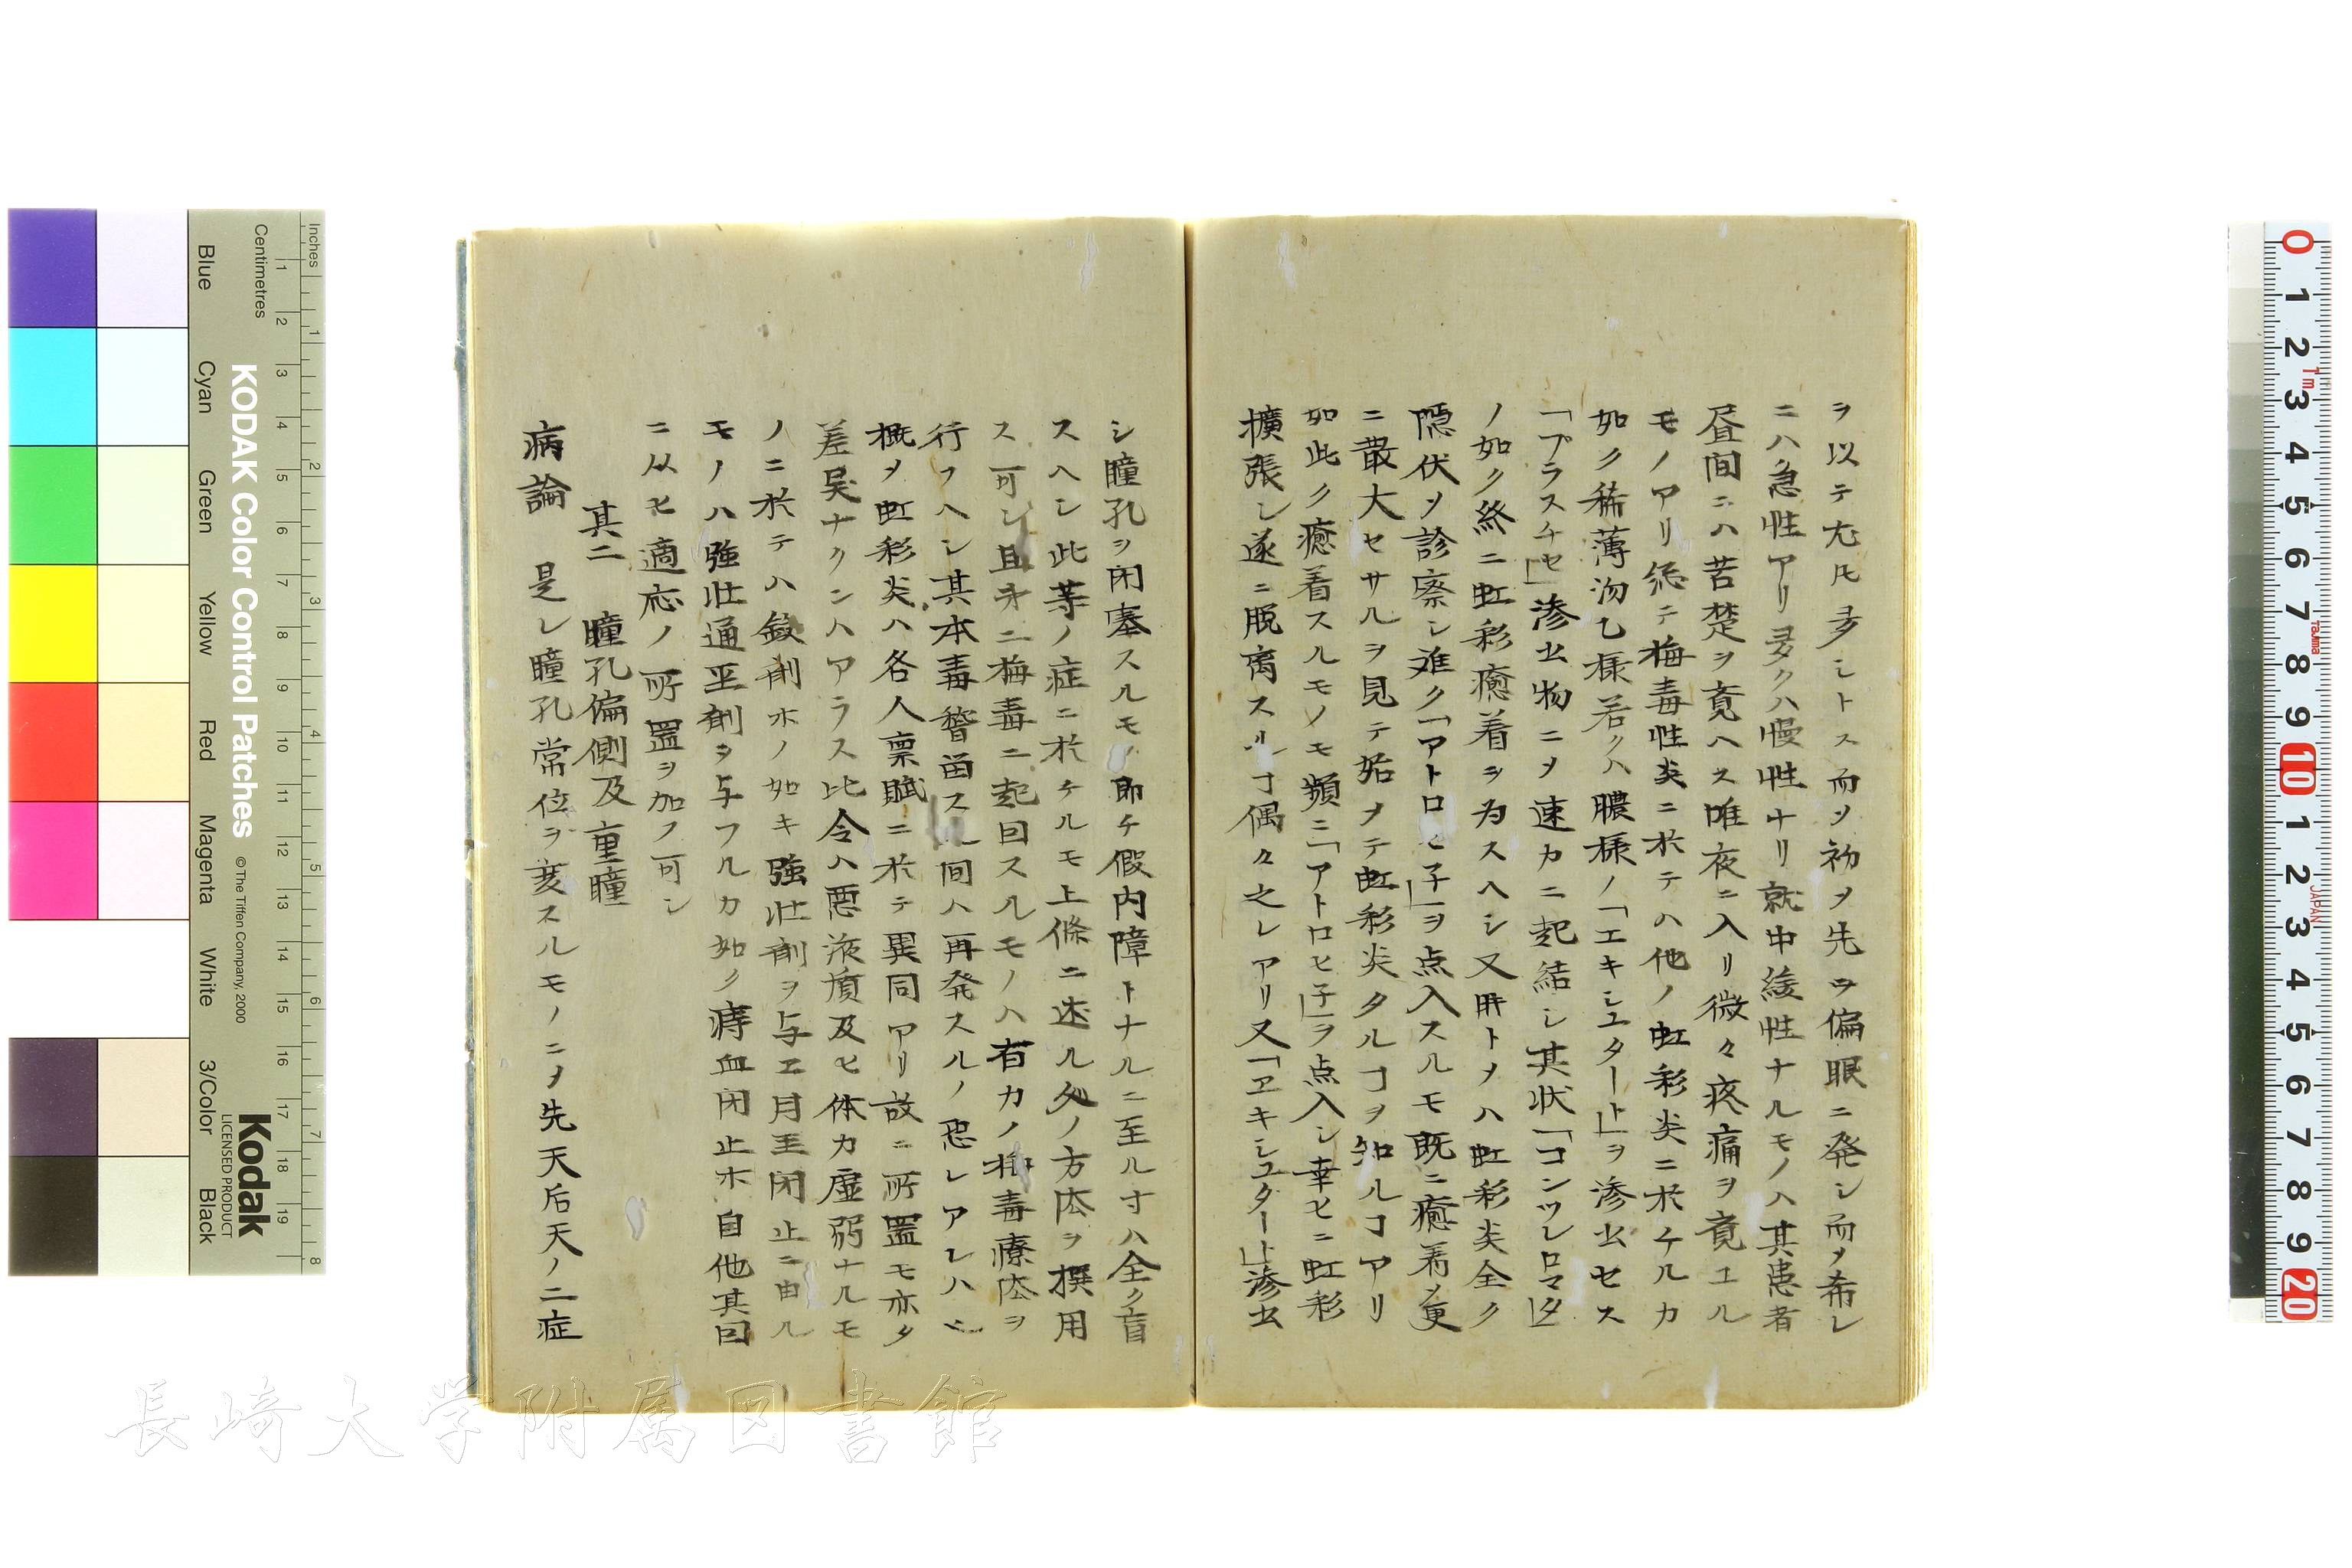 ヲ以テ尤モ多シトス而ヲ初メ先ツ偏眼ニ発シ而メ希レ
ニハ急性アリ多クハ慢性ナリ就中緩性ナルモノハ其患者
昼間ニハ苦楚ヲ覚ヘス唯夜ニ入リ微々疼痛ヲ覚ヱル
モノアリ総テ梅毒性炎ニ於テハ他ノ虹彩炎ニ於ケルカ
如ク稀薄沕乙様若クハ膿様ノ「エキシユタート」ヲ滲出セス
「プラスチセ」滲出物ニヲ速カニ起結シ其状「コンツレロマタ」
ノ如ク終ニ虹彩癒着ヲ為スヘシ又胼トメハ虹彩炎全ク
隠伏ヲ診察シ難ク「アトロヒ子」ヲ点入スルモ既ニ癒着メ更
ニ散大セサルヲ見テ始メテ虹彩炎タルヿヲ知ルヿアリ
如此ク癒着スルモノモ頻ニ「アトロヒ子」ヲ点入シ幸ヒニ虹彩
擴張シ遂ニ脱离スルヿ偶々之レアリ又「ヱキシユタート」滲出
シ瞳孔ヲ閉塞スルモノ即チ假内障トナルニ至ル寸ハ全ク盲
スヘシ此等ノ症ニ於ケルモ上條ニ述ル処ノ方法ヲ撰用
ス可シ且ツ梅毒ニ起因スルモノハ右カノ梅毒療法ヲ
行フヘシ其本毒稽留スル間ハ再発スルノ恐レアレハ
概メ虹彩炎ハ各人禀賦ニ於テ異同アリ故ニ所置モ亦タ
差異ナクンハアラス比令ハ悪液質及ヒ体力虚弱ナルモ
ノニ於テハ銕剤ホノ如キ強壮剤ヲ与ヱ月経閉止ニ由ル
モノハ強壮通経剤ヲ与フルカ如ク痔血閉止ホ自他其因
ニ从ヒ適応ノ所置ヲ加フ可シ
其二　瞳孔偏側及重瞳
病論　是レ瞳孔常位ヲ変スルモノニヲ先天后天ノ二症
KODAK Color Control Patches
©The Tiffen Company, 2000
Kodak
LICENSED PRODUCT
Inches
Centimetres
Blue
Cyan
Green
Yellow
Red
Magenta
White
3/Color
Black
長崎大学附属図書館